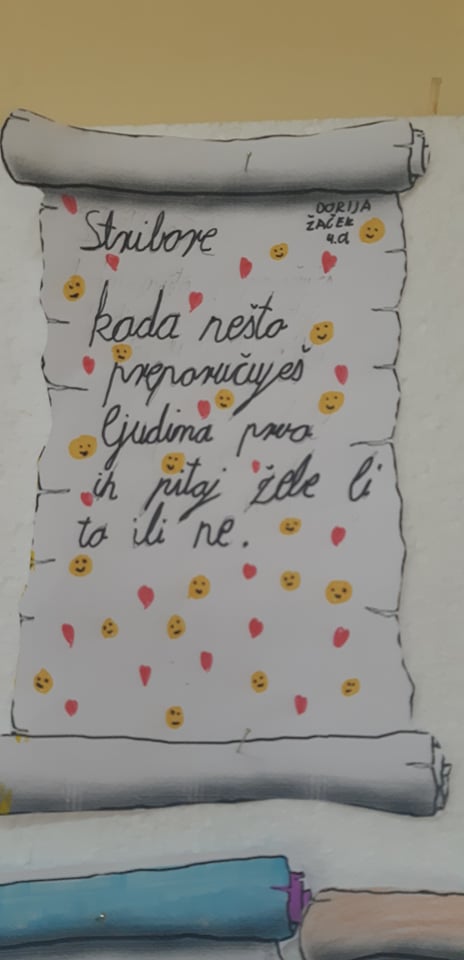 DORIJA
ŽAČEK
4.a
Stribore
kada nešto
preporučuješ
ljudima prvo
ih pitaj žele li
to ili ne.